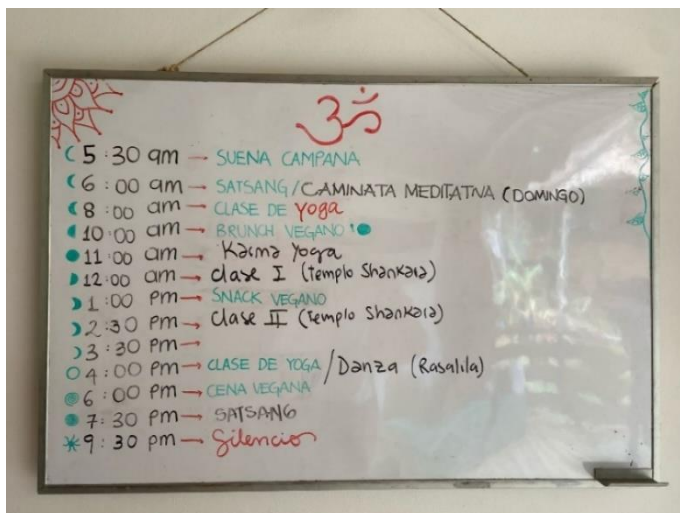 ॐ
5:30 am → SUENA CAMPANA
6:00 am → SATSANG/CAMINATA MEDITATIVA (DOMINGO)
8:00 am → CLASE DE Yoga
10:00 am → BRUNCH VEGANO
11:00 am → Karma Yoga
12:00 am → clase I (Templo Shankara)
1:00 pm → SNACK VEGANO
2:30 pm → clase II (Templo Shankara)
3:30 pm →
4:00 pm → CLASE DE YOGA/Danza (Rasalila)
6:00 pm → CENA VEGANA
7:30 pm → SATSANG
9:30 pm → Silencio